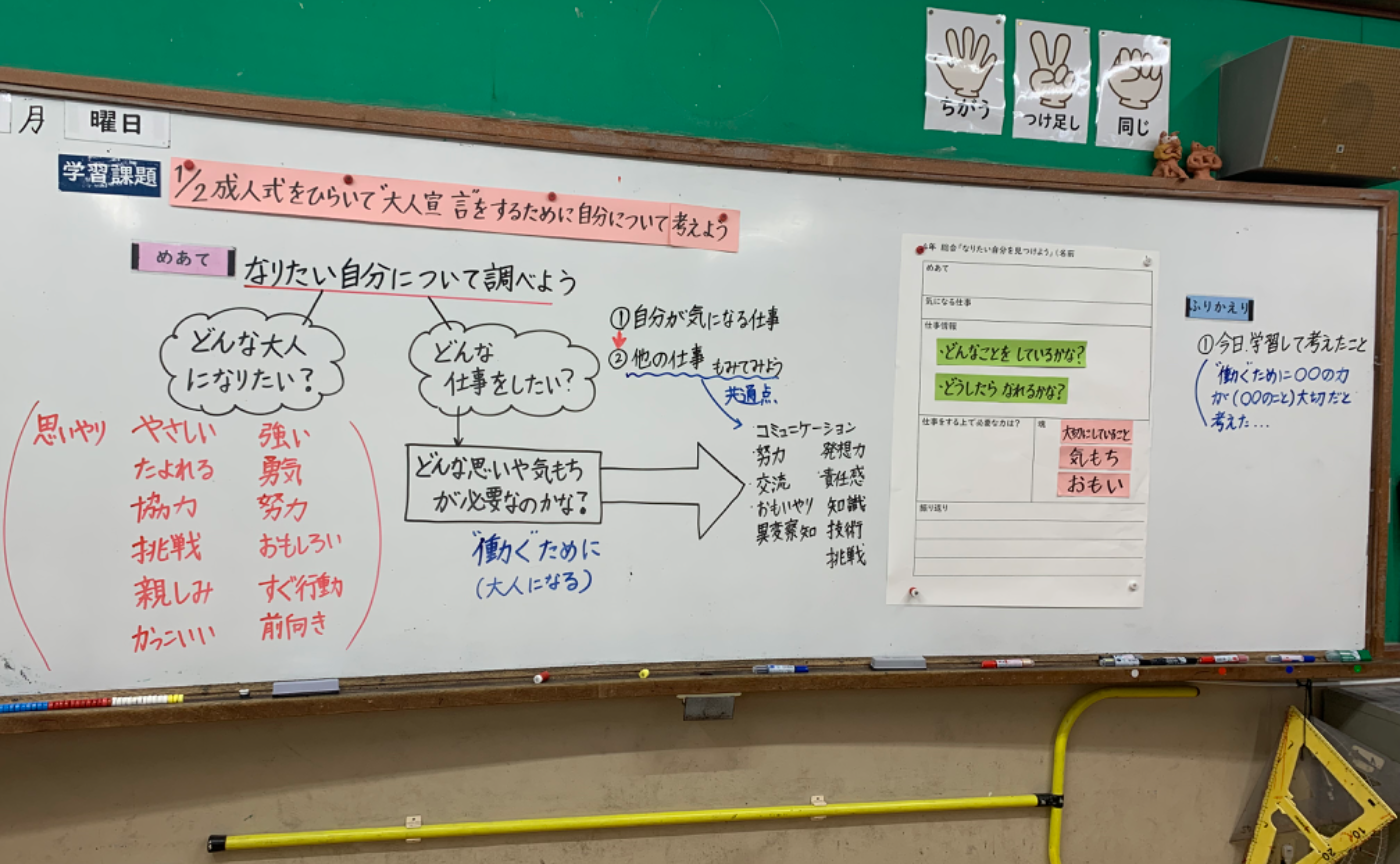 ちがう
つけ足し
同じ
月
曜日
学習課題
1/2成人式をひらいて"大人宣言"をするために自分について考えよう
めあて
なりたい自分について調べよう
どんな大人
になりたい?
思いやり
やさしい
たよれる
協力
挑戦
親しみ
かっこいい
強い
勇気
努力
おもしろい
すぐ行動
前向き
どんな
仕事をしたい?
どんな思いや気もち
が必要なのかな?
"働く"ために
(大人になる)
①自分が気になる仕事
②他の仕事もみてみよう
共通点
・コミュニケーション
・努力
・交流
・おもいやり
異変察知
発想力
・責任感
知識
技術
挑戦
4年 総合「なりたい自分を見つけよう」(名前
めあて
気になる仕事
仕事情報
・どんなことをしているかな?
・どうしたらなれるかな?
仕事をする上で必要な力は?
魂
大切にしていること
気もち
おもい
振り返り
ふりかえり
①今日、学習して考えたこと
"働く"ために〇〇の力
が(〇〇のこと)大切だと
考えた…